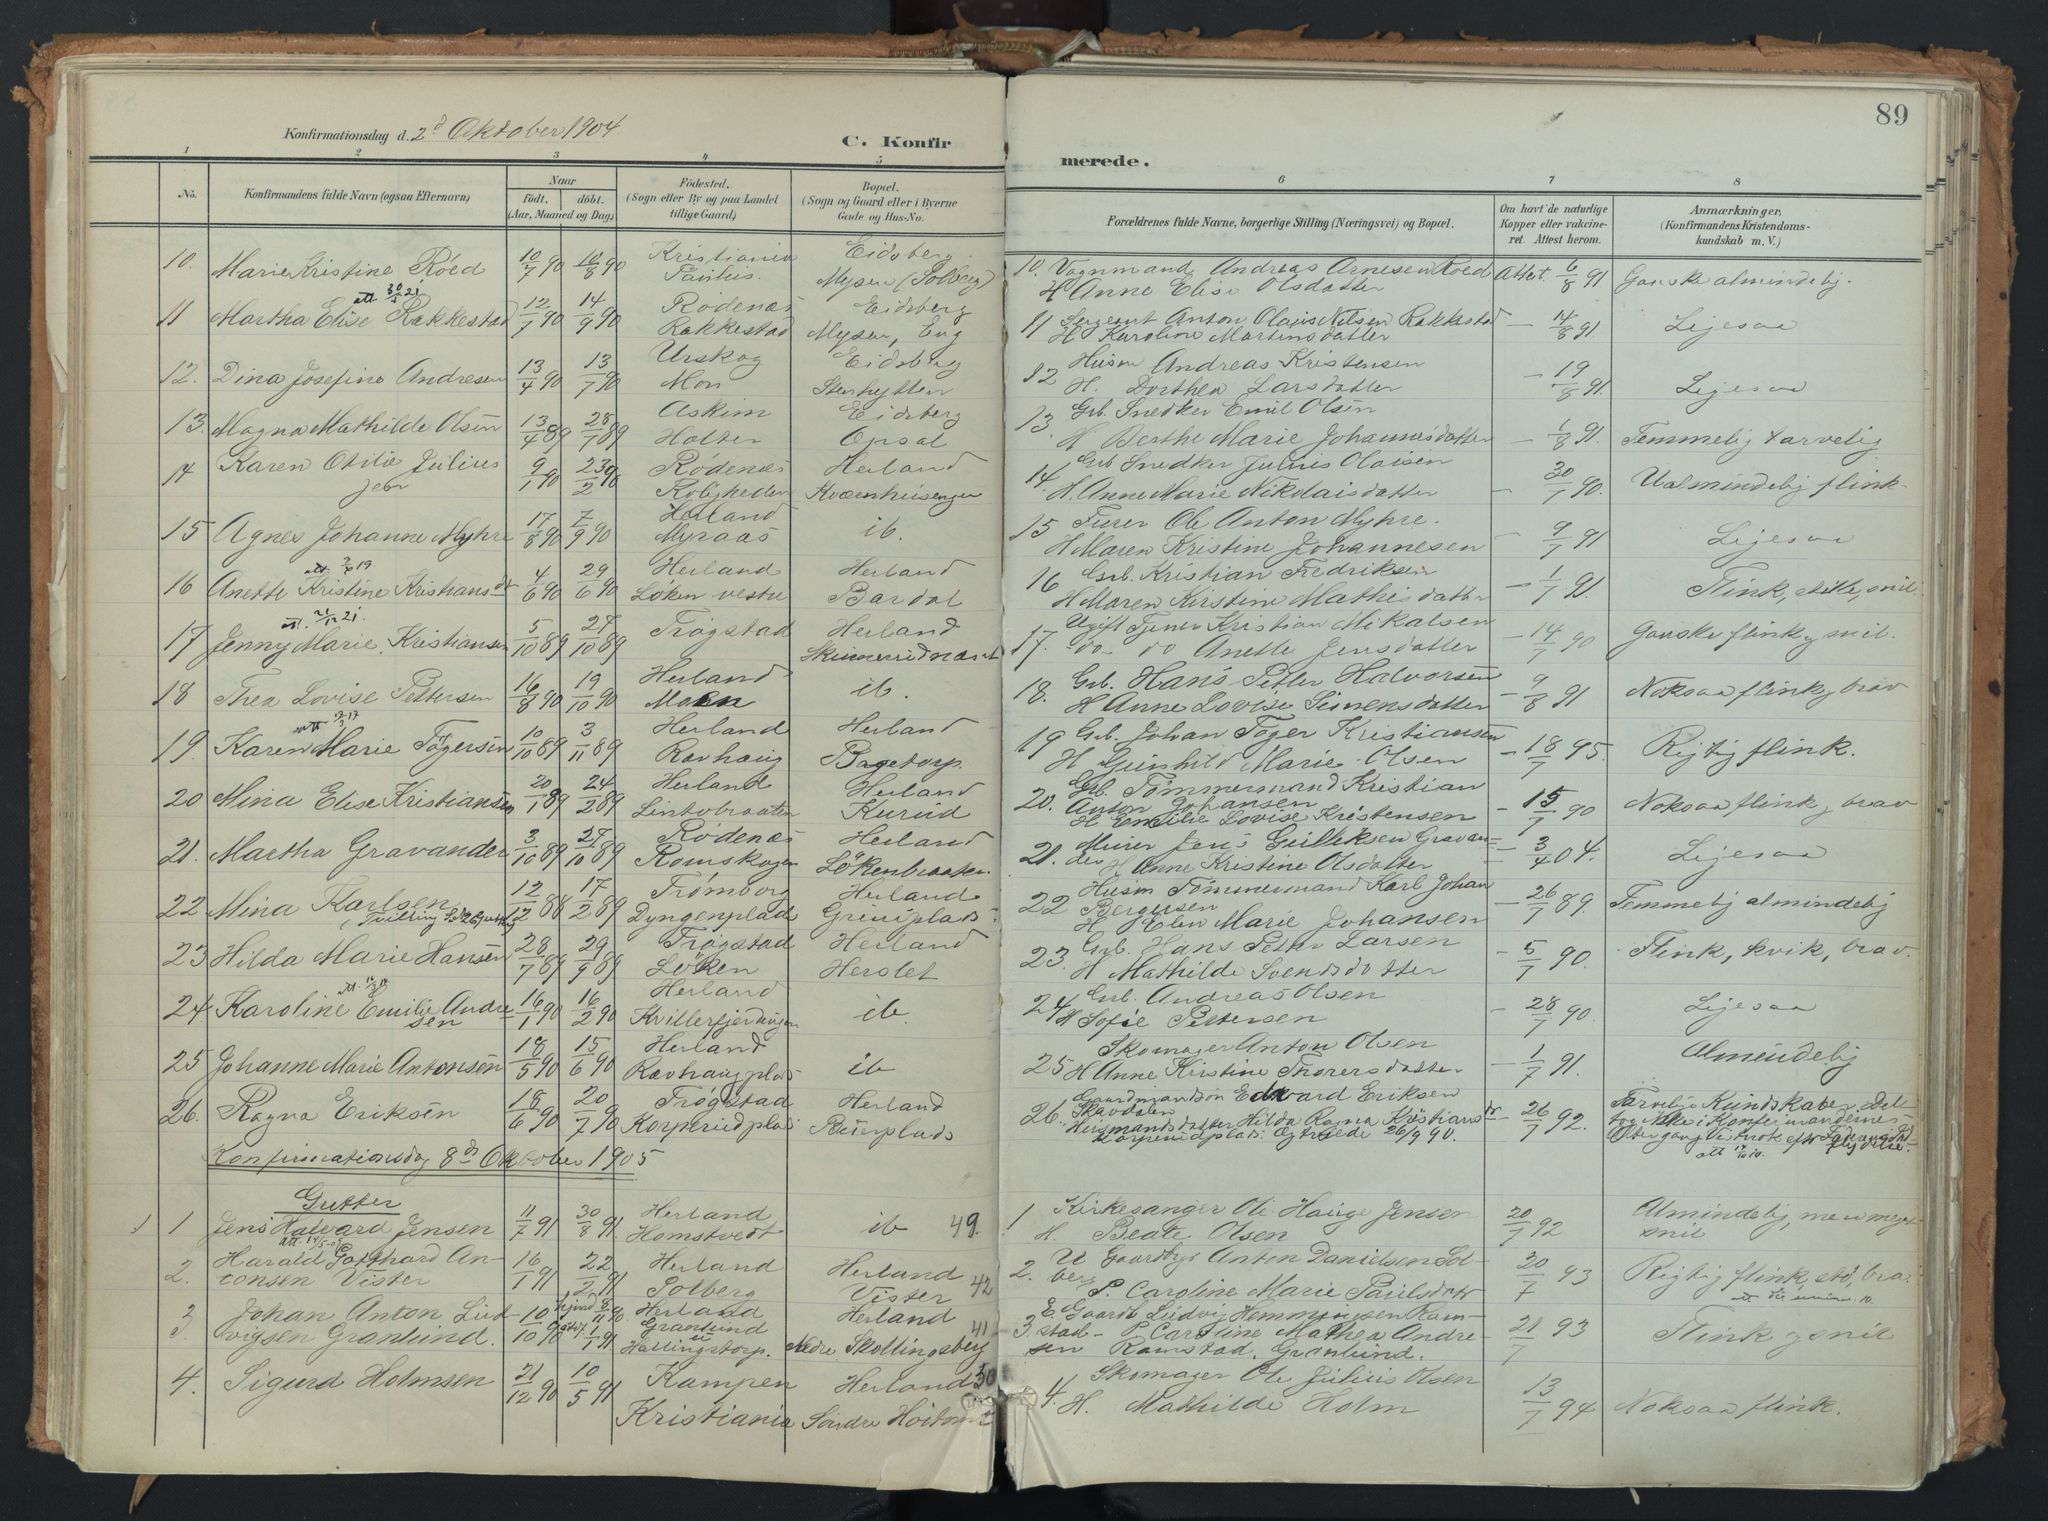 89
Konfirmationsdag d. 2d Oktober 1904.
C. Konfir
merede.
1 2 3 4 5 6 7 8
No.
Konfirmandens fulde Navn (ogsaa Efternavn)
Naar
födt. döbt.
(Aar, Maaned og Dag)
Födested.
(Sogn eller By og paa Landet
tillige Gaard)
Bopæl.
(Sogn og Gaard eller i Byerne
Gade og Hus-No.
Forældrenes fulde Navne, borgerlige Stilling (Næringsvei) og Bopæl.
Om havt de naturlige
Kopper eller vakcine-
ret. Attest herom.
Anmærkninger.
(Konfirmandens Kristendoms-
kundskab m. V.)
10. Marie Kristine Röed 10/7 90 10/8 90 Kristiania Eidsberg
Mysen (Solberg)
10. Vognmand Andreas Arnesen Roed Attest 6/8 91 Ganske almindelig.
H Anne Elise Olsdatter
att. 30/5 21
11 Martha Elise Rakkestad 12/7 90 14/9 90 Rodenæs Eidsberg
Rakkestad Mysen, Eng
11 Sergeant Anton Olaus Nilsen Rakkestad - 14/8 91 Ligesaa
H Karoline Martinsdatter
12. Dina Josefine Andresen 13/4 90 13/7 90 Urskog Eidsberg
Mon
12 Husm Andreas Kristensen - 19/8 91 Ligesaa
H. Dorthea Larsdatter
13. Magna Mathilde Olsen 13/4 89 28/7 89 Askim Eidsberg
Holter Opsal
13. Grb. Snedker Emil Olsen
H Berthe Marie Johannesdatter - 1/8 91. Temmelig tarvelig
14 Karen Otilie Julius 9/1 90 23/2 90 Rödenæs Herland
jen Roligheden
14. Grb Snedker Julius Olaisen - 30/7 90. Ualmindelig flink
H. Anne Marie Nikolaisdatter
15 Agnes Johanne Myhre 17/8 90 7/9 90 Herland ib.
Myraas
15 Furer Ole Anton Myhre. - 9/7 91 Ligesaa
H Maren Kristine Johannesen
16 Anette Kristine Kristiansdt 4/6 90 29/6 90 Herland Herland
Löken vestre Bardal
16 Grb. Kristian Fredriksen - 1/7 91 Flink, stille, snil
H Maren Kirstine Mathisdatter
17 Jenny Marie Kristiansen 5/10 89 27/10 89 Trøgstad Herland
17. Ugift Tjener Kristian Mikalsen - 14/7 90 Ganske flink og snil.
do do Anette Jensdatter
18 Thea Lovise Pettersen 16/8 90 19/10 90 Herland ib.
Moen
18. Grb. Hans Petter Halvorsen - 9/8 91 Noksaa flink, brav
H Anne Lovise Simensdatter
19. Karen Marie Tögersen 10/10 89 3/11 89 Herland Herland
Ravhaug Bagetorp.
19 Grb. Johan Töger Kristiansen - 18/7 95. Rigtig flink.
H Gunhild Marie Olsen
20 Mina Elise Kristiansen 20/1 89 24/2 89 Herland Herland
Lintobraaten Kurud
20. Grb. Tömmermand Kristian
Anton Johansen - 15/7 90 Noksaa flink, brav
H Emilie Lovise Kristensen
21. Martha Gravander 3/10 89 27/10 89 Rödenæs Herland
Romskogen Lökenbraaten.
21. Murer Jens Gulliksen Gravan-
der H Anne Kristine Olsdatter - 3/4 04. Ligesaa
22 Mina Karlsen 12/12 88 17/2 89 Trömborg Herland
Dyngenplads Griniplads
22 Husm Tömmermand Karl Johan
Bergersen - 26/7 89. Temmelig almindelig
H Elen Marie Johansen
23 Hilda Marie Hansen 28/7 89 29/9 89 Trøgstad Herland
Löken Herslet
23. Grb. Hans Petter Larsen - 5/7 90. Flink, kvik, brav.
H Mathilde Svendsdatter
24 Karoline Emilie Andre 16/1 90 16/2 90 Herland ib.
sen Kvillerfjerdingen
24 Grb. Andreas Olsen - 28/7 90. Ligesaa
H Sofie Pettersen
25 Johanne Marie Antonsen 18/5 90 15/6 90 Herland ib
Ravhaugplads
25 Skomager Anton Olsen - 1/7 91. Almindelig
H Anne Kristine Thorersdatter
26. Ragna Eriksen 18/6 90 20/7 90 Trøgstad Herland
Korperudplads
26. Gaardmandsön Edvard Eriksen
Skavdalen
Husmandsdatter Hilda Ragna Kristiansdr - 26/7 92.
Korperudplads. Ogtviede 26/9 90.
Tarvelig Kundskaber. Del
tog ikke i Konfirmandernes
Konfirmationsdag 8de Oktober 1905
Gutter
1 Jens Halvard Jensen 11/7 91 30/8 91 Herland ib 49.
Homstvedt
1 Kirkesanger Ole Hauge Jensen 20/7 92 Almindelig, men meget
H. Beate Olsen snil
2. Harald Gotthard An- 16/1 91 22/2 91 Herland Herland 42
tonsen Vister Solberg Vister
2. U Gaardbr Anton Danielsen Sol- 20/7 93 Rigtig flink, stø, brav
berg P. Caroline Marie Paulsdatt
3. Johan Anton Lud 10/10 90 Herland Herland 41
vigsen Grønlund. Grønlund
Hallingstorp. Nedre Skollingsberg
3. E. Gaardb Ludvig Hemmingsen Ram- 21/7 93 Flink og snil
stad - P Caroline Mathea Andre-
sen Ramstad, Grønlund.
4. Sigurd Holmsen 21/12 90 10/5 91 Kampen Herland 50
Kristiania Söndre Hoitomt
4. Skomager Ole Julius Olsen 13/7 94 Noksaa flink.
H. Mathilde Holm